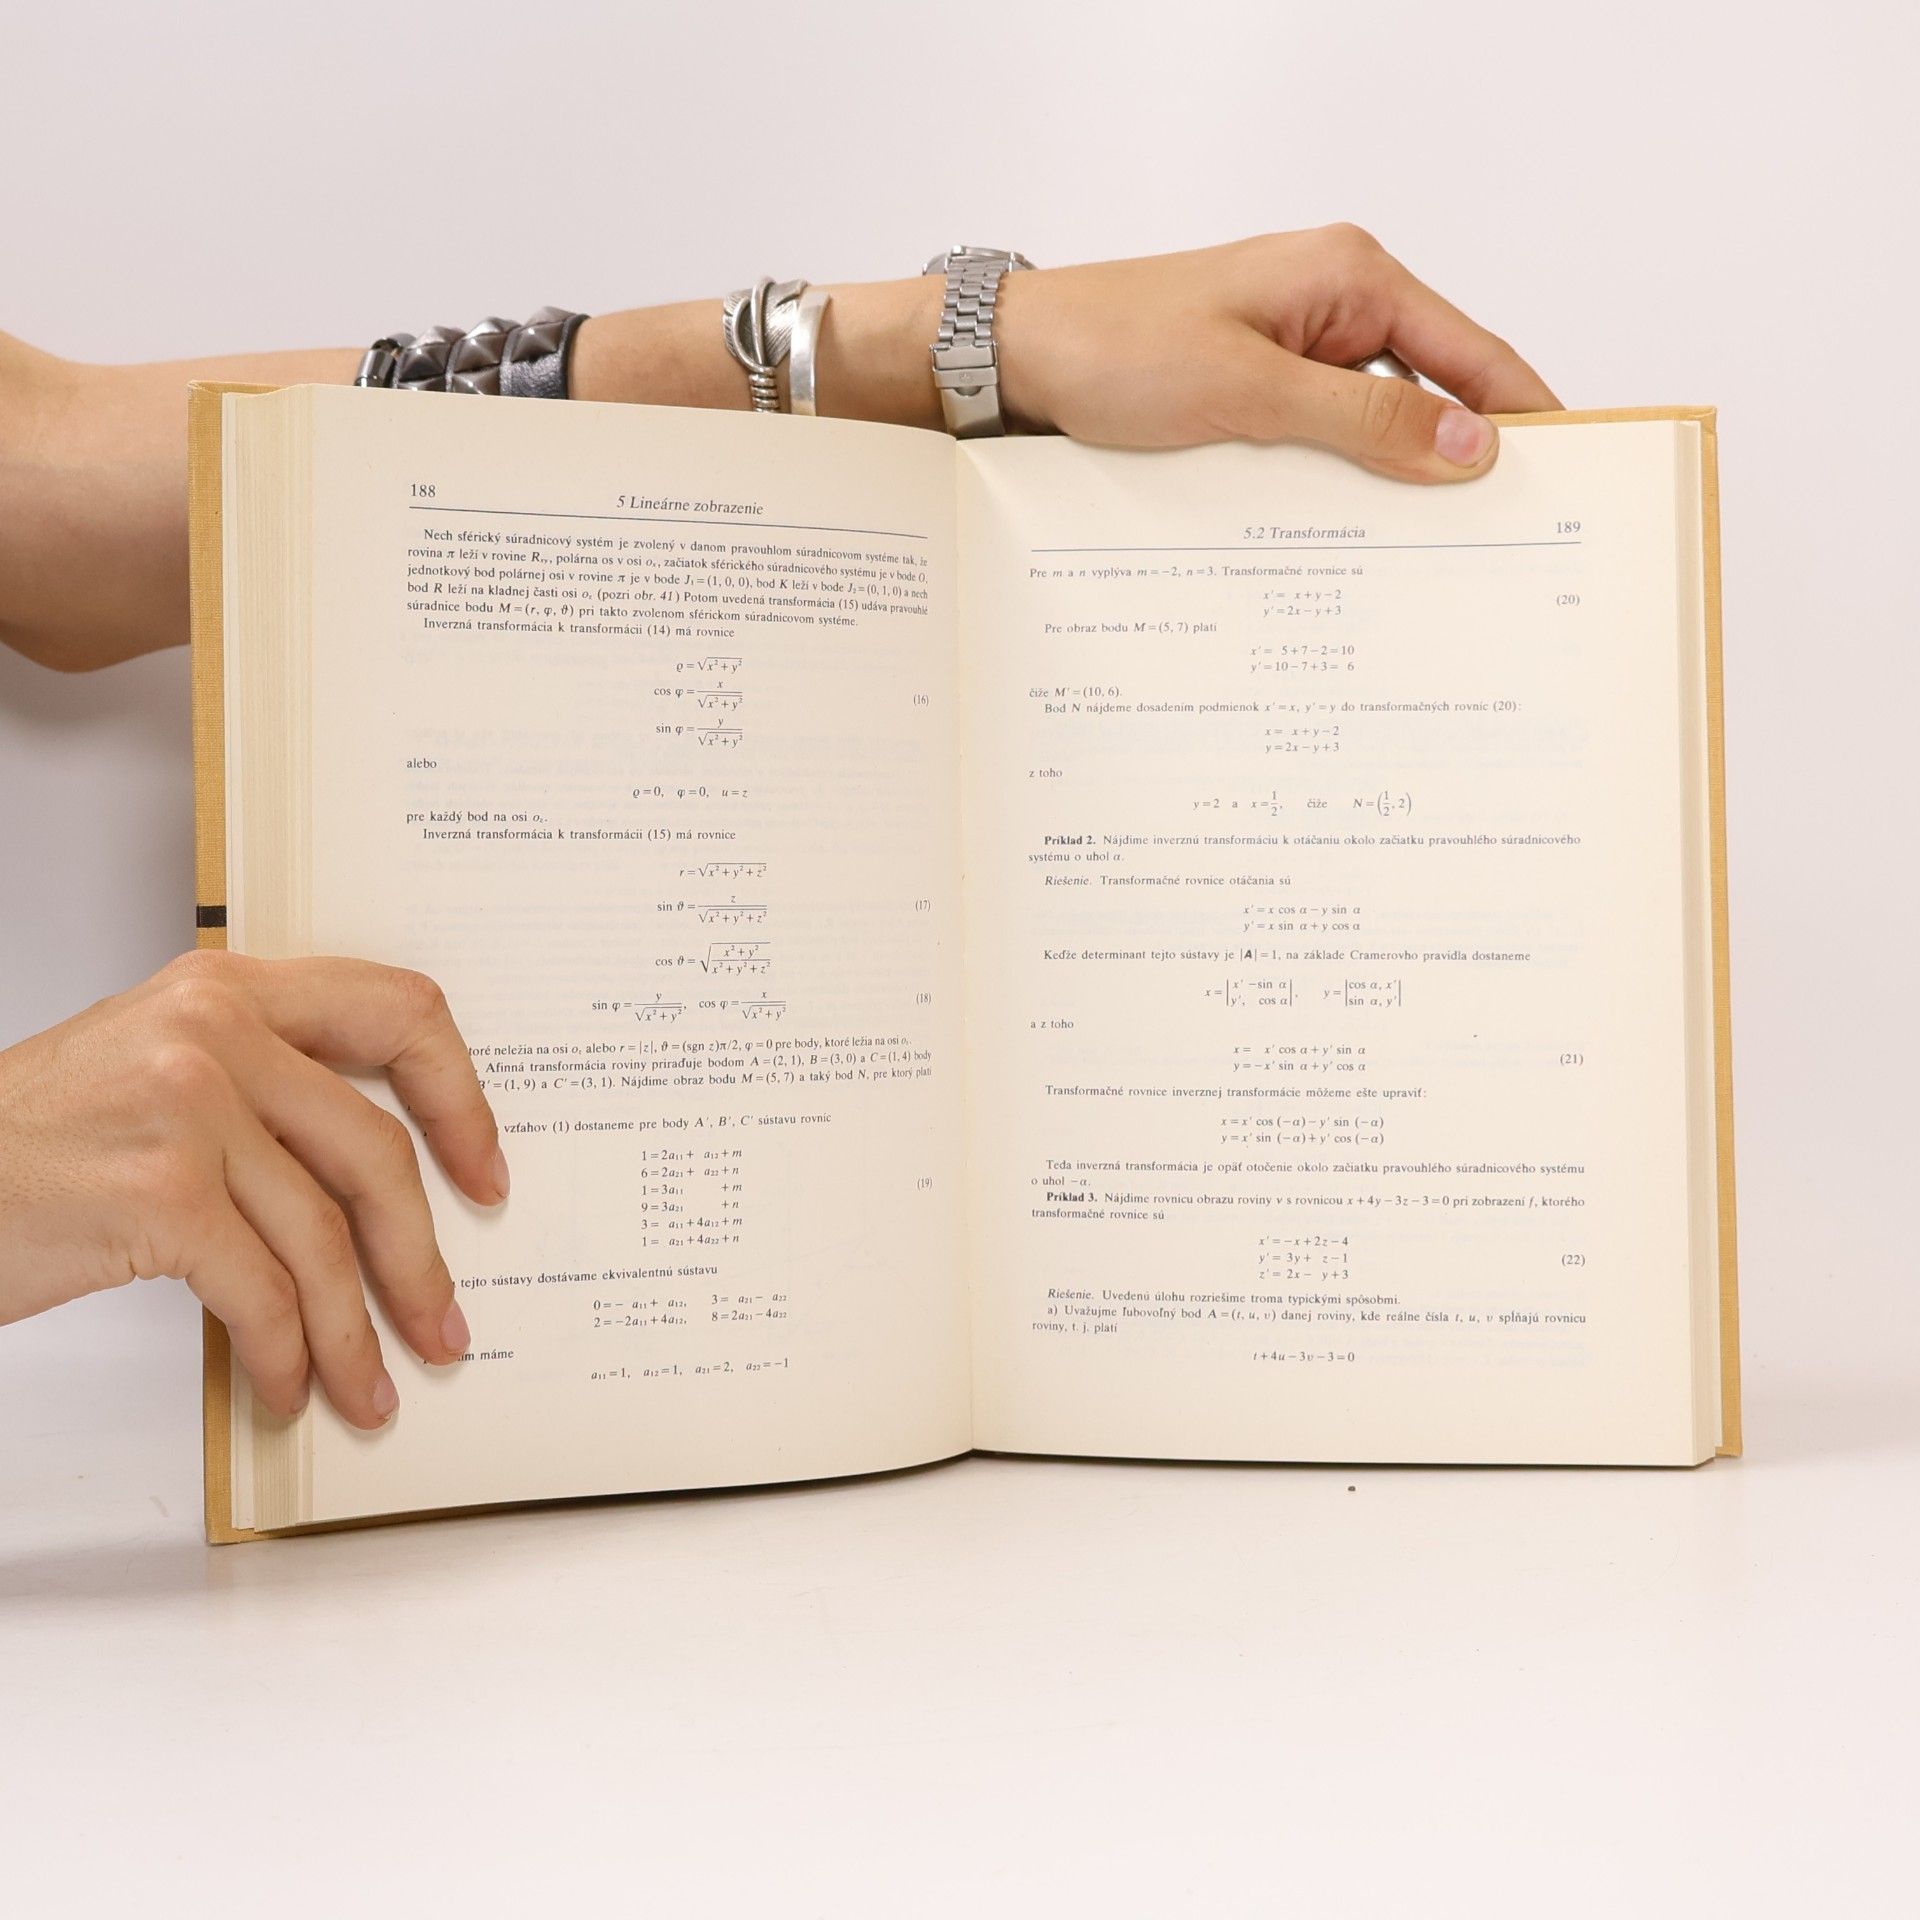 188
5 Lineárne zobrazenie
Nech sférický súradnicový systém je zvolený v danom pravouhlom súradnicovom systéme tak, že
rovina π leží v rovine Rₓᵧ, polárna os v osi oₓ, začiatok sférického súradnicového systému je v bode 0,
jednotkový bod polárnej osi v rovine π je v bode J₁=(1, 0, 0), bod K leží v bode J₂=(0, 1, 0) a nech
bod R leží na kladnej časti osi o_z (pozri obr. 41) Potom uvedená transformácia (15) udáva pravouhlé
súradnice bodu M=(r, φ, ϑ) pri takto zvolenom sférickom súradnicovom systéme.
Inverzná transformácia k transformácii (14) má rovnice
ϱ=√(x²+y²)
cos φ = x/√(x²+y²) (16)
sin φ = y/√(x²+y²)
alebo
ϱ=0, φ=0, u=z
pre každý bod na osi o_z.
Inverzná transformácia k transformácii (15) má rovnice
r=√(x²+y²+z²)
sin ϑ = z/√(x²+y²+z²) (17)
cos ϑ = √((x²+y²)/(x²+y²+z²))
sin φ = y/√(x²+y²), cos φ = x/√(x²+y²) (18)
neležia na osi o_z alebo r=|z|, ϑ=(sgn z)π/2, φ=0 pre body, ktoré ležia na osi o_z.
Afinná transformácia roviny priraďuje bodom A=(2, 1), B=(3, 0) a C=(1, 4) body
B′=(1, 9) a C′=(3, 1). Nájdime obraz bodu M=(5, 7) a taký bod N, pre ktorý platí
vzťahov (1) dostaneme pre body A′, B′, C′ sústavu rovníc
1=2a₁₁+ a₁₂+m
6=2a₂₁+ a₂₂+n
1=3a₁₁ +m (19)
9=3a₂₁ +n
3= a₁₁+4a₁₂+m
1= a₂₁+4a₂₂+n
tejto sústavy dostávame ekvivalentnú sústavu
0=− a₁₁+ a₁₂, 3= a₂₁− a₂₂
2=−2a₁₁+4a₁₂, 8=2a₂₁−4a₂₂
máme
a₁₁=1, a₁₂=1, a₂₁=2, a₂₂=−1
5.2 Transformácia
189
Pre m a n vyplýva m=−2, n=3. Transformačné rovnice sú
x′= x+y−2
y′=2x−y+3 (20)
Pre obraz bodu M=(5, 7) platí
x′= 5+7−2=10
y′=10−7+3= 6
čiže M′=(10, 6).
Bod N nájdeme dosadením podmienok x′=x, y′=y do transformačných rovníc (20):
x= x+y−2
y=2x−y+3
z toho
y=2 a x=1/2, čiže N=(1/2, 2)
Príklad 2. Nájdime inverznú transformáciu k otáčaniu okolo začiatku pravouhlého súradnicového
systému o uhol α.
Riešenie. Transformačné rovnice otáčania sú
x′=x cos α−y sin α
y′=x sin α+y cos α
Keďže determinant tejto sústavy je |A|=1, na základe Cramerovho pravidla dostaneme
x=|x′ −sin α|, y=|cos α, x′|
|y′, cos α| |sin α, y′|
a z toho
x= x′ cos α+y′ sin α
y=−x′ sin α+y′ cos α (21)
Transformačné rovnice inverznej transformácie môžeme ešte upraviť:
x=x′ cos (−α)−y′ sin (−α)
y=x′ sin (−α)+y′ cos (−α)
Teda inverzná transformácia je opäť otočenie okolo začiatku pravouhlého súradnicového systému
o uhol −α.
Príklad 3. Nájdime rovnicu obrazu roviny ν s rovnicou x+4y−3z−3=0 pri zobrazení f, ktorého
transformačné rovnice sú
x′=−x+2z−4
y′= 3y+ z−1 (22)
z′= 2x− y+3
Riešenie. Uvedenú úlohu rozriešime troma typickými spôsobmi.
a) Uvažujme ľubovoľný bod A=(t, u, v) danej roviny, kde reálne čísla t, u, v spĺňajú rovnicu
roviny, t. j. platí
t+4u−3v−3=0